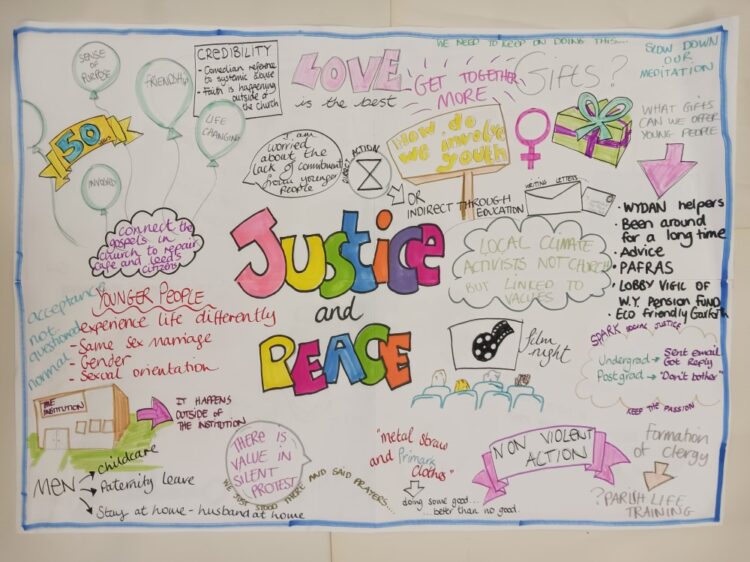 WE NEED TO KEEP ON DOING THIS...
SLOW DOWN
OUR
MEDITATION
SENSE
OF
PURPOSE
FRIENDSHIP
LIFE
CHANGING
50
CREDIBILITY
- Comedian reference
to systemic abuse
- Faith is happening
outside of
the Church
LOVE
is the best
GET TOGETHER
MORE
Gifts?
WHAT GIFTS
CAN WE OFFER
YOUNG PEOPLE
I am
worried
about the
lack of commitment
from younger
people
DIRECT ACTION
How do
we involve
youth
OR
INDIRECT THROUGH
EDUCATION
WRITING LETTERS
connect the
gospels in
church to repair
cafe and Leeds
citizens
Justice
and
PEACE
LOCAL CLIMATE
ACTIVISTS NOT CHURCH
BUT LINKED TO
VALUES
• WYDAN helpers
• Been around
for a long time
• Advice
• PAFRAS
• LOBBY VIGIL OF
W.Y. PENSION FUND
• Eco Friendly Garforth
acceptance
not
questioned
normal
YOUNGER PEOPLE
- experience life differently
- Same sex marriage
- Gender
- Sexual orientation
film
night
SPARK SOCIAL JUSTICE
Undergrad → Sent email
Got Reply
Postgrad → "Don't bother"
KEEP THE PASSION
THE
INSTITUTION
IT HAPPENS
OUTSIDE OF
THE INSTITUTION
MEN
childcare
Paternity leave
Stay at home - husband at home
THERE IS
VALUE IN
SILENT
PROTEST
WE JUST STOOD THERE AND SAID PRAYERS...
"Metal straw
and Primark
clothes"
doing some good...
...better than no good.
NON VIOLENT
ACTION
Formation
of clergy
? PARISH LIFE
TRAINING